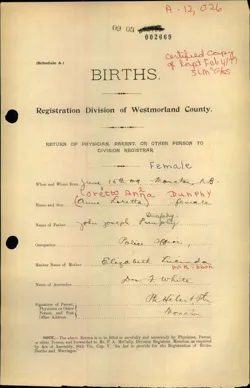 A-12,026
09 03
002669
(Schedule A.)
Certified Copy
of Regst Feb 4/77
BIRTHS.
Registration Division of Westmorland County.
RETURN OF PHYSICIAN, PARENT, OR OTHER PERSON TO
DIVISION REGISTRAR.
Female
When and Where Born June 15th Moncton, N.B.
Loretto Anna DUNPHY
Name and Sex Anna Loretta female
Dunphy
Name of Father John Joseph
Occupation Police Officer
Maiden Name of Mother Elizabeth
Dr. F White
Signature of Parent,
Physician or Other
Person, and Post
Office Address
St.
Moncton
NOTE. The above Return is to be filled in carefully and accurately by Physician, Parent,
or other Person, and forwarded to Mr. F. A. McCully, Division Registrar, Moncton, as required
by Act of Assembly, 50th Vic., Chap. 5, "An Act to provide for the Registration of Births,
Deaths and Marriages."